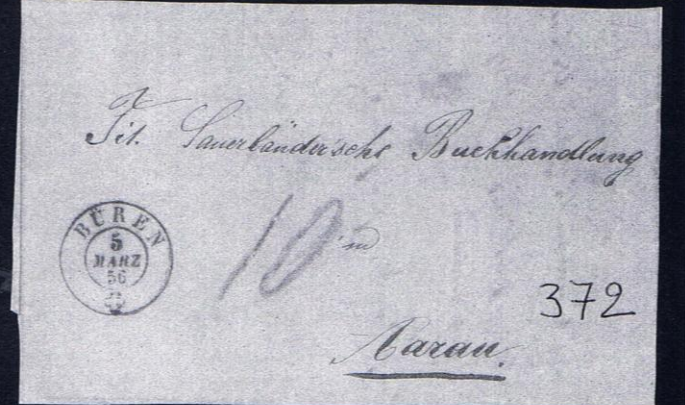 Tit. Sauerländersche Buchhandlung
BÜREN
5
MÄRZ
56
10
in
372
Aarau.